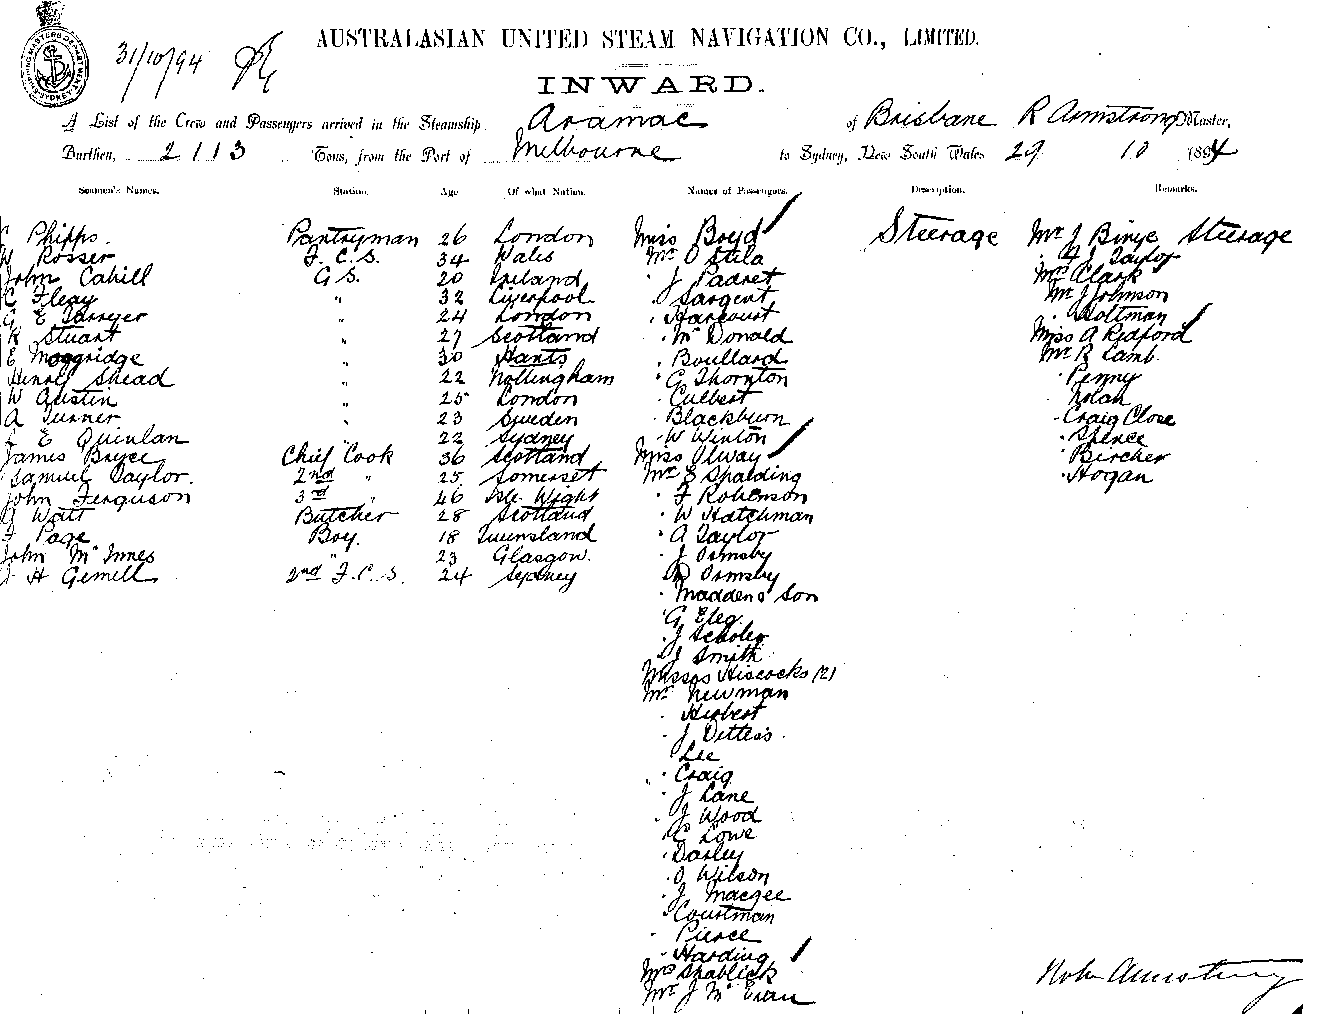 SHIPPING MASTERS DEPARTMENT SYDNEY
31/10/94
AUSTRALASIAN UNITED STEAM NAVIGATION CO., LIMITED.
INWARD.
A List of the Crew and Passengers arrived in the Steamship Aramac of Brisbane R Armstrong Master,
Burthen, 2113 Tons, from the Port of Melbourne to Sydney, New South Wales 29 10 1894
Seamen's Names. Station. Age Of what Nation. Names of Passengers. Description. Remarks.
C Phipps. Pantryman 26 London Miss Boyd Steerage Mr J Binge Steerage
W Rosser F.C.S. 34 Wales Mr O Stila J Taylor
John Cahill G S. 20 Ireland " J Padret Mrs Clark
C Fleay " 32 Liverpool Sargent Mr J Johnson
G E Sawyer " 24 London " Harcourt Hottman
R Stuart " 27 Scotland " McDonald Miss A Redford
E Moggridge " 30 Hants " Boullard Mr R Lamb.
Henry Shead " 22 Nottingham " G Thornton " Penny
W Austin " 25 London " Culbert " Nolan
A Turner " 23 Sweden " Blackburn " Craig Close
J E Quinlan " 22 Sydney " W Winton " Spence
James Bryce Chief Cook 36 Scotland Miss Olway " Bircher
Samuel Taylor. 2nd " 25 Somerset Mr E Spalding " Hogan
John Ferguson 3rd " 46 Isle Wight " F Robenson
Watt Butcher 28 Scotland " W Hatchman
F Page Boy. 18 Queensland " A Taylor
John McInnes " 23 Glasgow. " J Ormsby
J H Gemell 2nd F.C.S. 24 Sydney Ormsby
" Madden & Son
" G Eleg.
" J Scholes
J Smith
Misses Hiscocks (2)
Mr Newman
" Herbert
" J Ditters
" Lee
" Craig
" J Lane
" J Wood
" C Lowe
" Darley
" O Wilson
" J Macgee
" Coustman
" Pierce
" Harding
Mrs Shablick
Mr J McEvan
Robt Armstrong